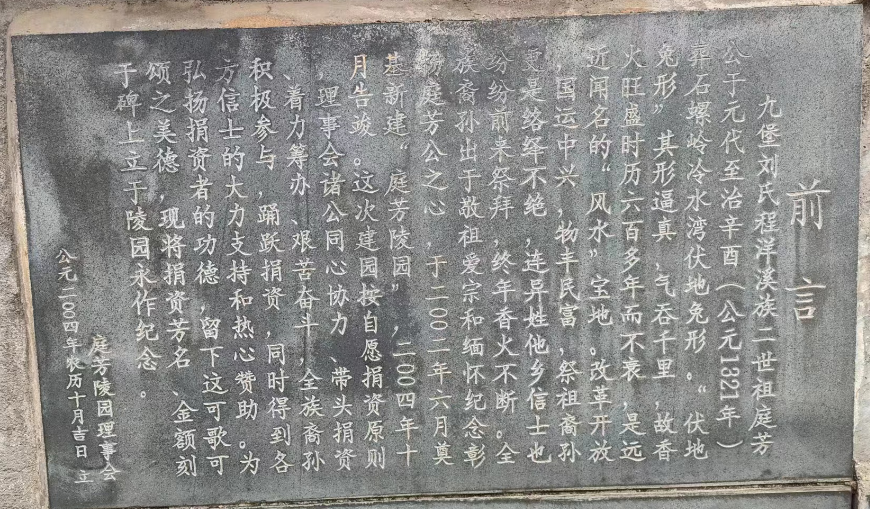 前言
九堡刘氏程洋溪族二世祖庭芳
公于元代至治辛酉（公元1321年）
葬石螺岭冷水湾伏地兔形。“伏地
兔形”其形逼真，气吞千里，故香
火旺盛时历六百多年而不衰，是远
近闻名的“风水”宝地。改革开放
，国运中兴，物丰民富，祭祖裔孙
更是络绎不绝，连异姓他乡信士也
纷纷前来祭拜，终年香火不断。全
族裔孙出于敬祖爱宗和缅怀纪念彰
扬庭芳公之心，于二00二年六月奠
基新建“庭芳陵园”，二00四年十
月告竣。这次建园按自愿捐资原则
，理事会诸公同心协力、带头捐资
、着力筹办、艰苦奋斗，全族裔孙
积极参与，踊跃捐资，同时得到各
方信士的大力支持和热心赞助。为
弘扬捐资者的功德，留下这可歌可
颂之美德，现将捐资芳名、金额刻
于碑上立于陵园永作纪念。
庭芳陵园理事会
公元二00四年农历十月吉日 立